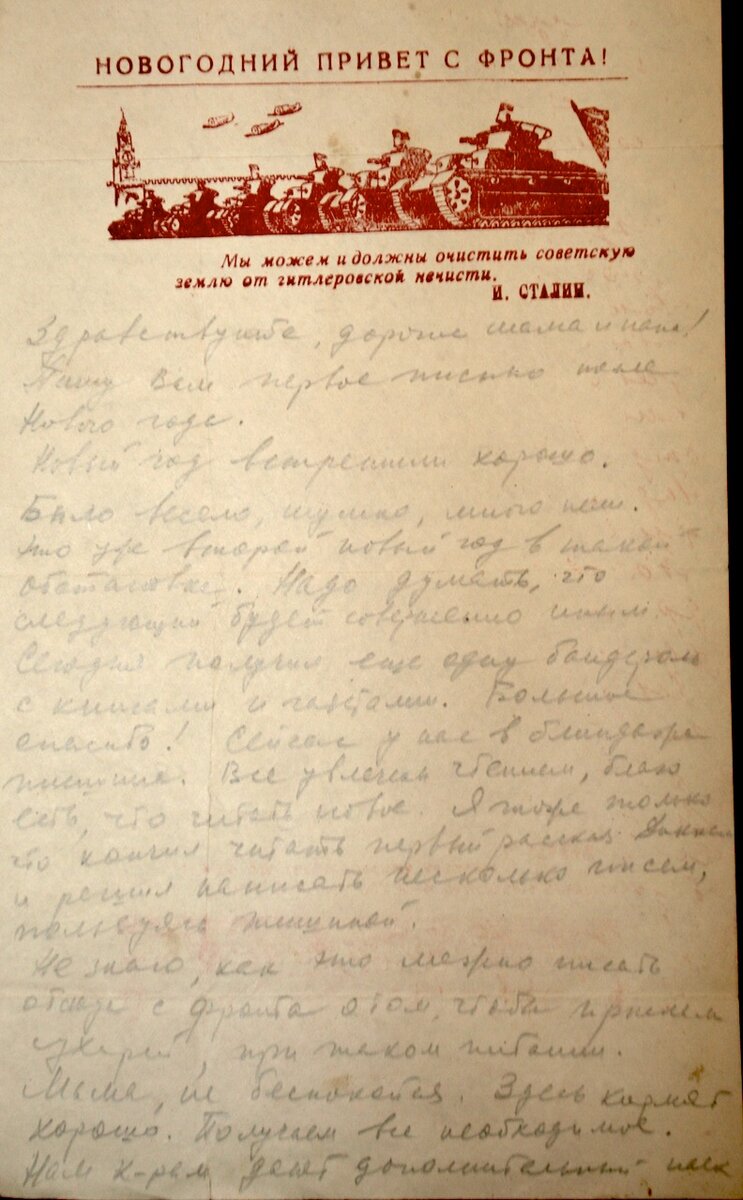 НОВОГОДНИЙ ПРИВЕТ С ФРОНТА!
Мы можем и должны очистить советскую
землю от гитлеровской нечисти.
И. СТАЛИН.
Здравствуйте, дорогие мама и папа!
Пишу Вам первое письмо после
Нового года.
Новый год встретили хорошо.
Было весело, шумно, много
Это уже второй новый год в такой
обстановке. Надо думать, что
следующий будет совершенно иным.
Сегодня получил еще одну бандероль
с книгами и газетами. Большое
спасибо! Сейчас у нас в блиндаже
тишина. Все увлечены чтением, благо
есть, что читать новое. Я тоже только
что кончил читать первый рассказ
и решил написать несколько писем,
пользуясь тишиной.
Не знаю, как это можно писать
отсюда с фронта о том, чтобы прислали
сухарей, при таком питании.
Мама, не беспокойся. Здесь кормят
хорошо. Получаем все необходимое.
Нам к-рам дают дополнительный паек